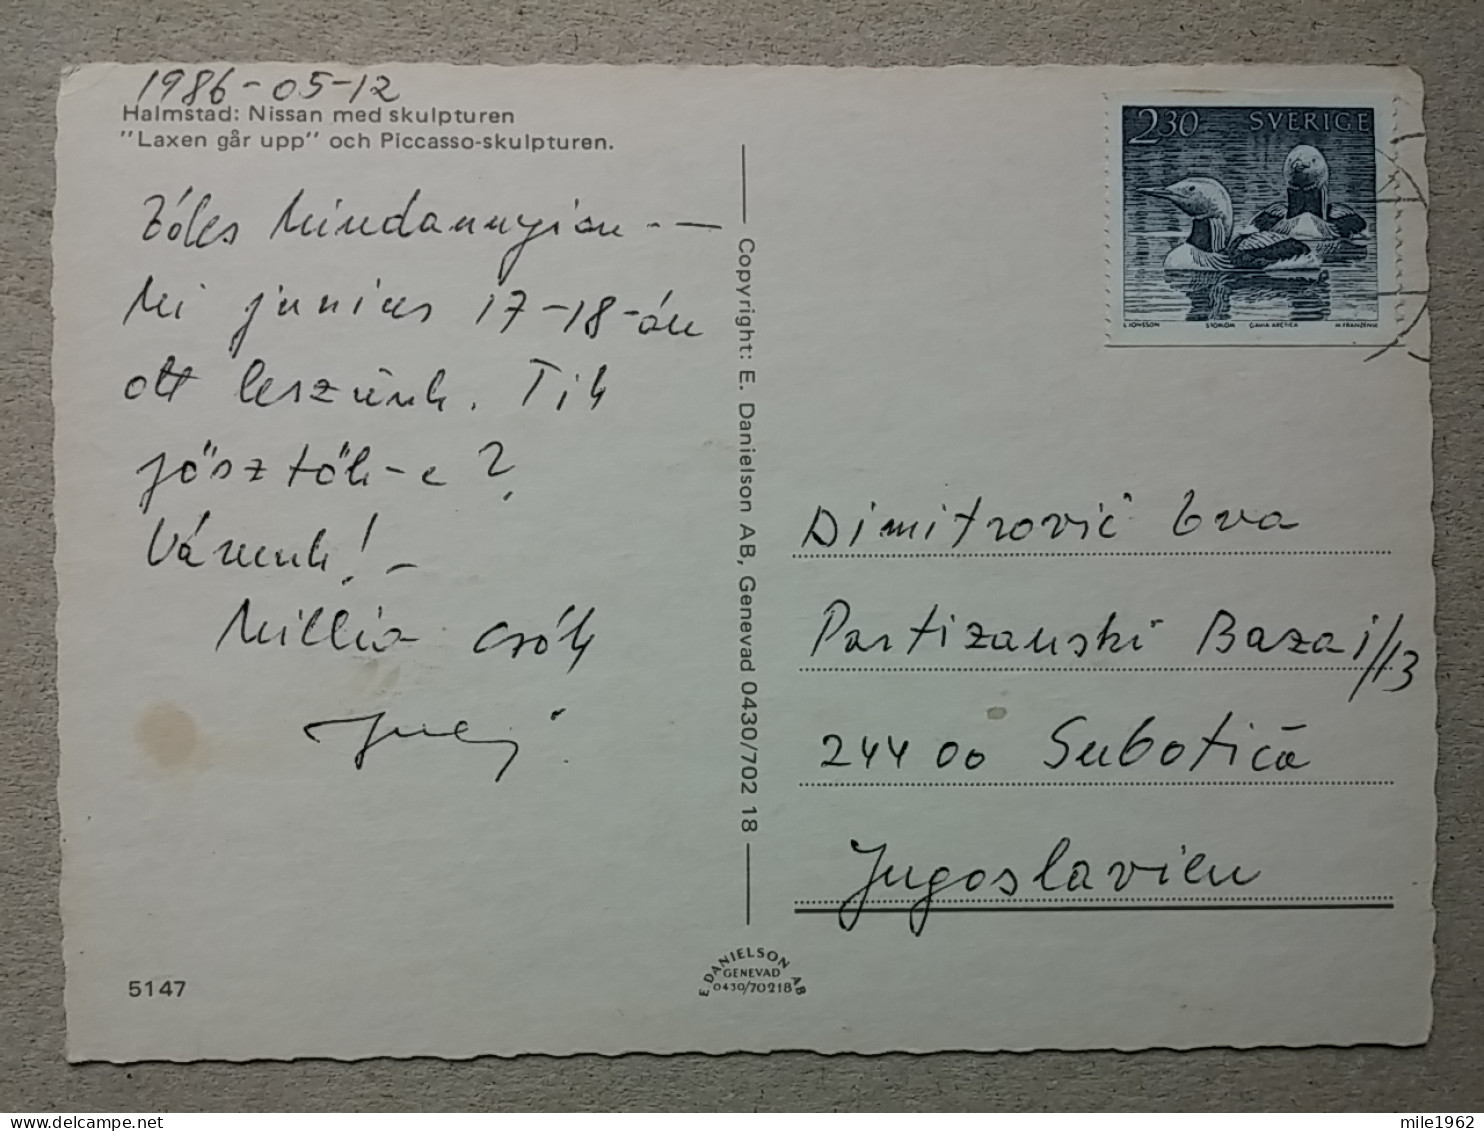 1986-05-12
Halmstad: Nissan med skulpturen
"Laxen går upp" och Piccasso-skulpturen.
Mindannyian --
Mi junius 17-18-án
ott leszünk. Tik
jösztök-e?
Várunk! -
Millió csók
5147
Copyright: E. Danielson AB, Genevad 0430/702 18
E. DANIELSON AB
GENEVAD
0430/70218
2.30 SVERIGE
L JONSSON STORLOM GAVIA ARCTICA M FRANZÉN SC
Dimitrović Eva
Partizanski Baza i/13
24400 Subotica
Jugoslavien
mile1962